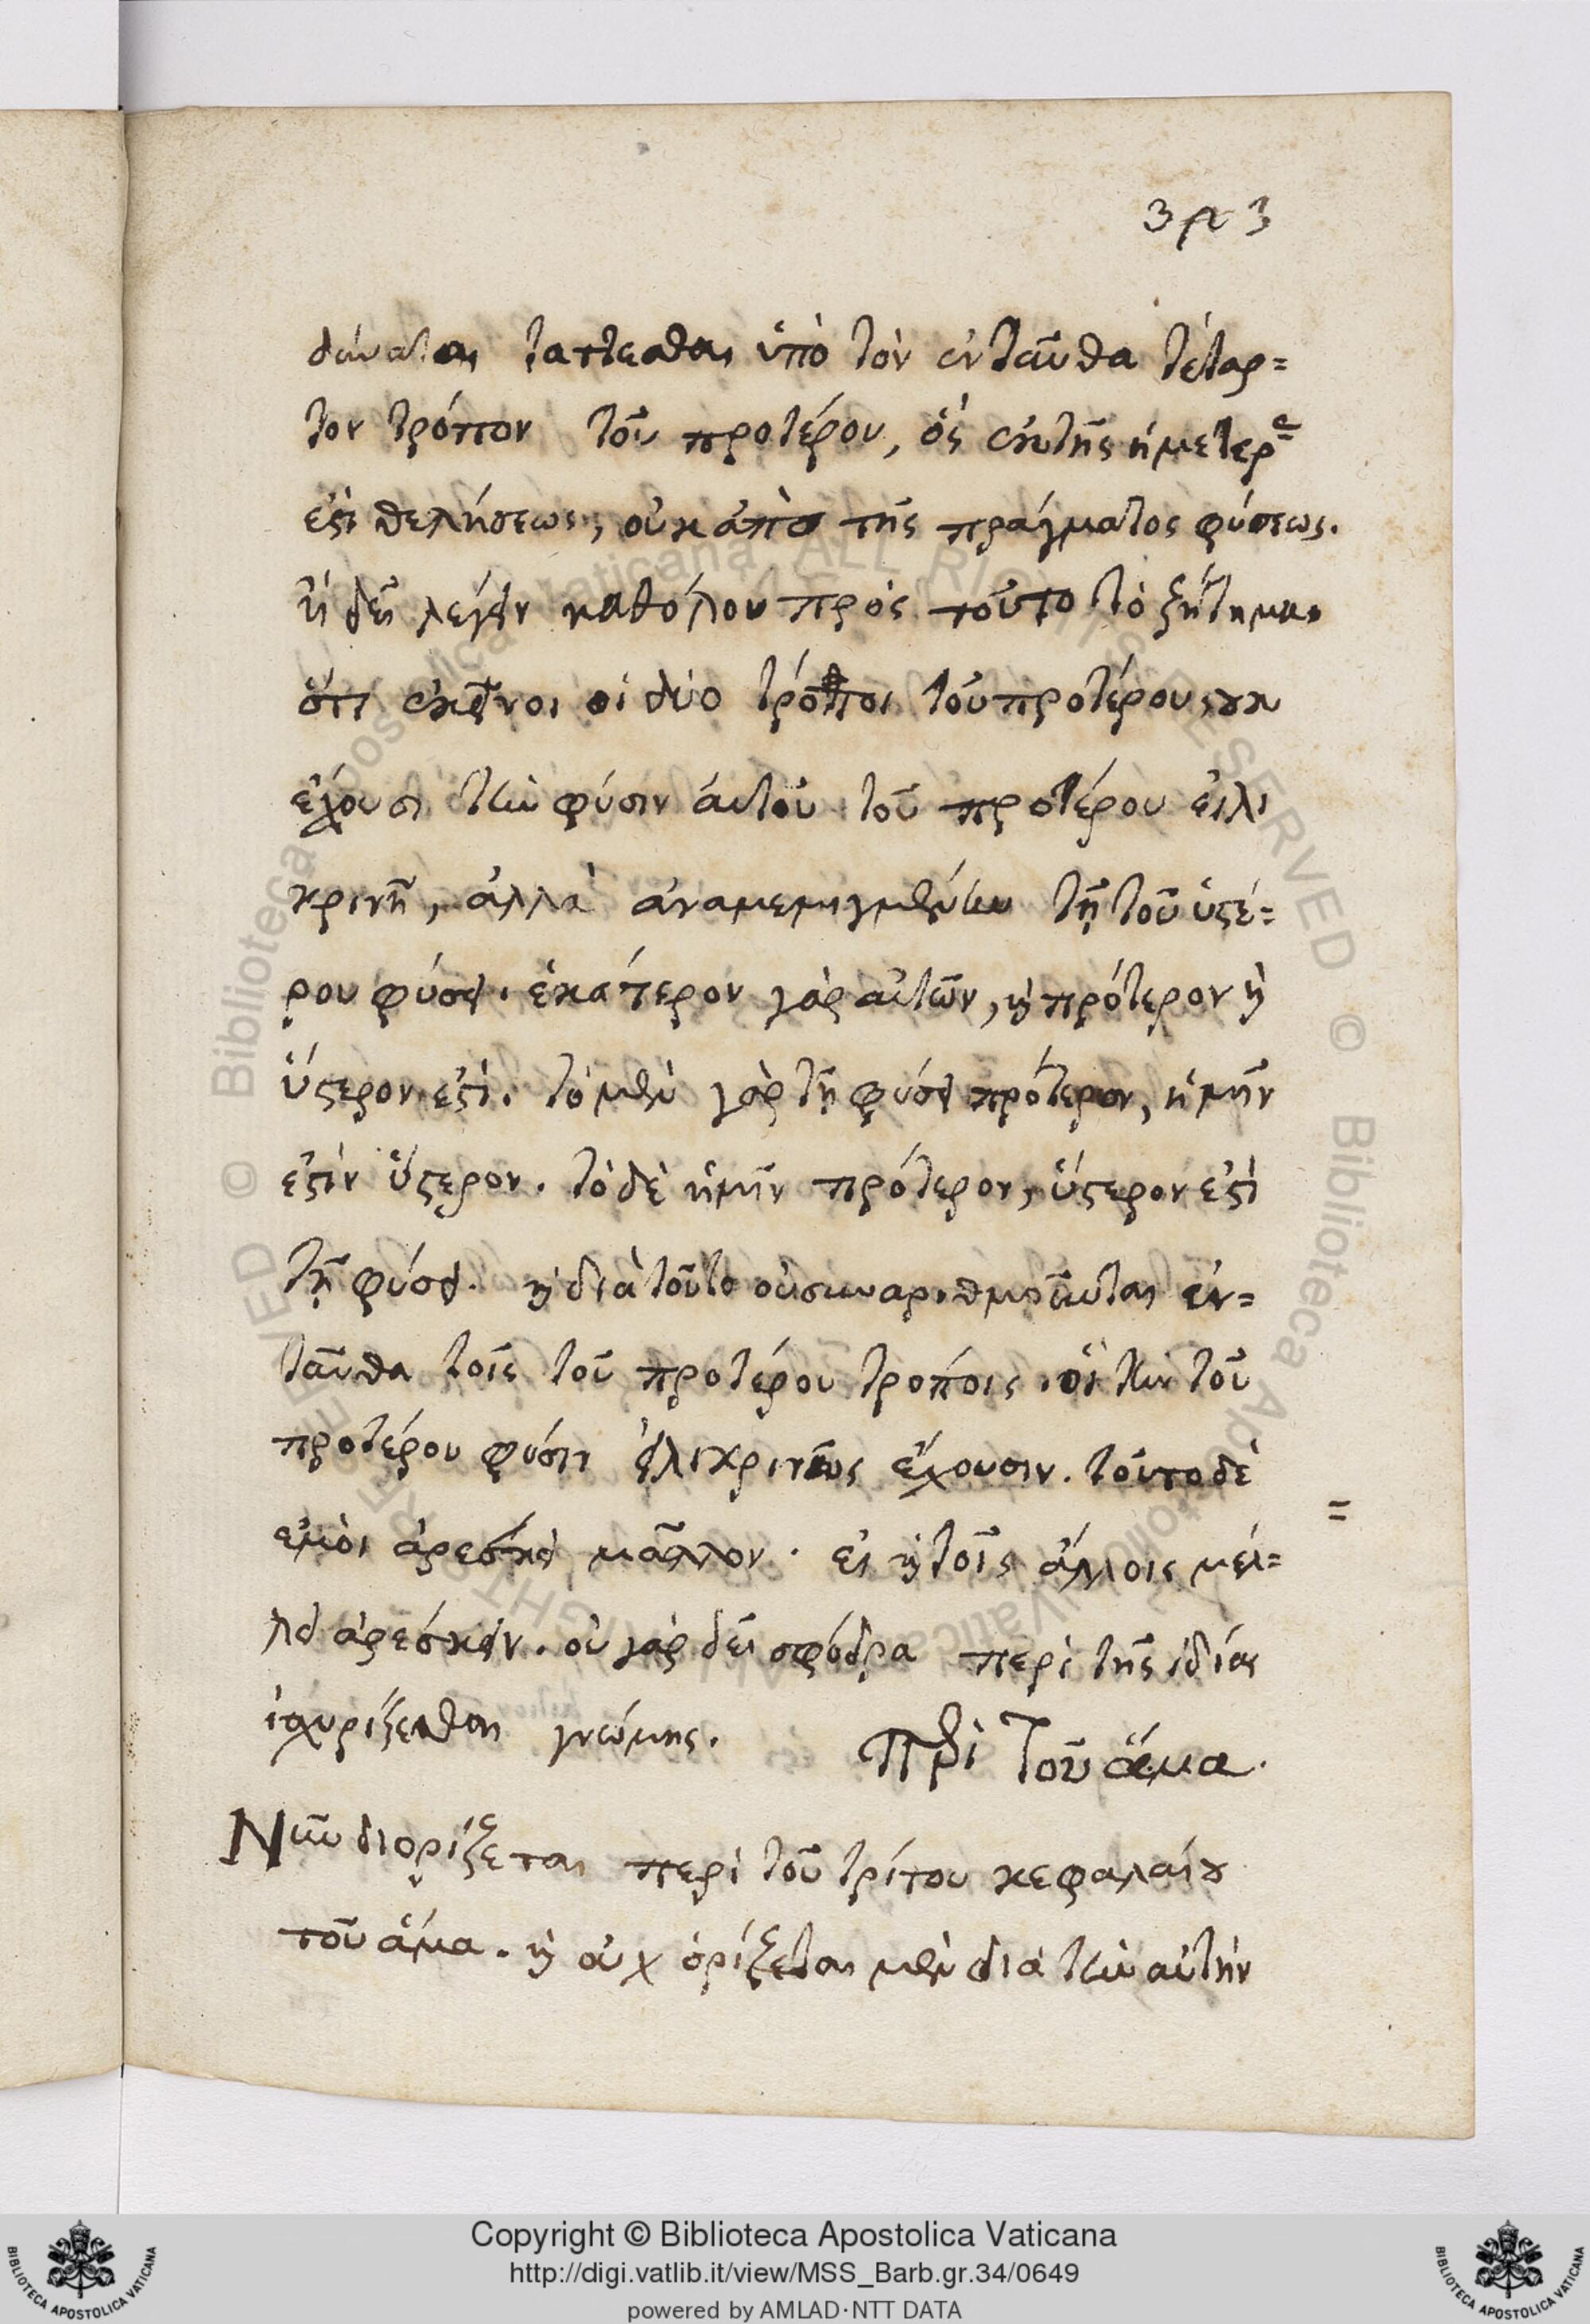 323
δύναται τάττεσθαι ὑπὸ τὸν ἐνταῦθα τέταρ=
τον τρόπον τοῦ προτέρου, ὃς ἐκ τῆς ἡμετέρας
ἐστὶ θελήσεως, οὐκ ἀπὸ τῆς πράγματος φύσεως.
ἢ δεῖ λέγειν καθόλου πρὸς τοῦτο τὸ ζήτημα,
ὅτι ἐκεῖνοι οἱ δύο τρόποι τοῦ προτέρου, οὐκ
ἔχουσι τὴν φύσιν αὐτοῦ τοῦ προτέρου εἰλι
κρινῆ, ἀλλὰ ἀναμεμιγμένην τῇ τοῦ ὑστέ=
ρου φύσει. ἑκάτερον γὰρ αὐτῶν, καὶ πρότερον καὶ
ὕστερον ἐστὶ. τὸ μὲν γὰρ τῇ φύσει πρότερον, ἡμῖν
ἐστὶν ὕστερον. τὸ δὲ ἡμῖν πρότερον, ὕστερον ἐστὶ
τῇ φύσει. καὶ διὰ τοῦτο οὐ συναριθμοῦνται ἐν=
ταῦθα τοῖς τοῦ προτέρου τρόποις, οἳ τὴν τοῦ
προτέρου φύσιν εἰλικρινῶς ἔχουσιν. τοῦτο δὲ
ἐμοὶ ἀρέσκει μᾶλλον. εἰ καὶ τοῖς ἄλλοις μέλ=
λει ἀρέσκειν. οὐ γὰρ δεῖ σφόδρα περὶ τῆς ἰδίας
ἰσχυρίζεσθαι γνώμης. Περὶ τοῦ ἅμα.
Νῦν διορίζεται περὶ τοῦ τρίτου κεφαλαίου
τοῦ ἅμα. καὶ οὐχ ὁρίζεται μὲν διὰ τὴν αὐτὴν
=
Copyright © Biblioteca Apostolica Vaticana
http://digi.vatlib.it/view/MSS_Barb.gr.34/0649
powered by AMLAD·NTT DATA